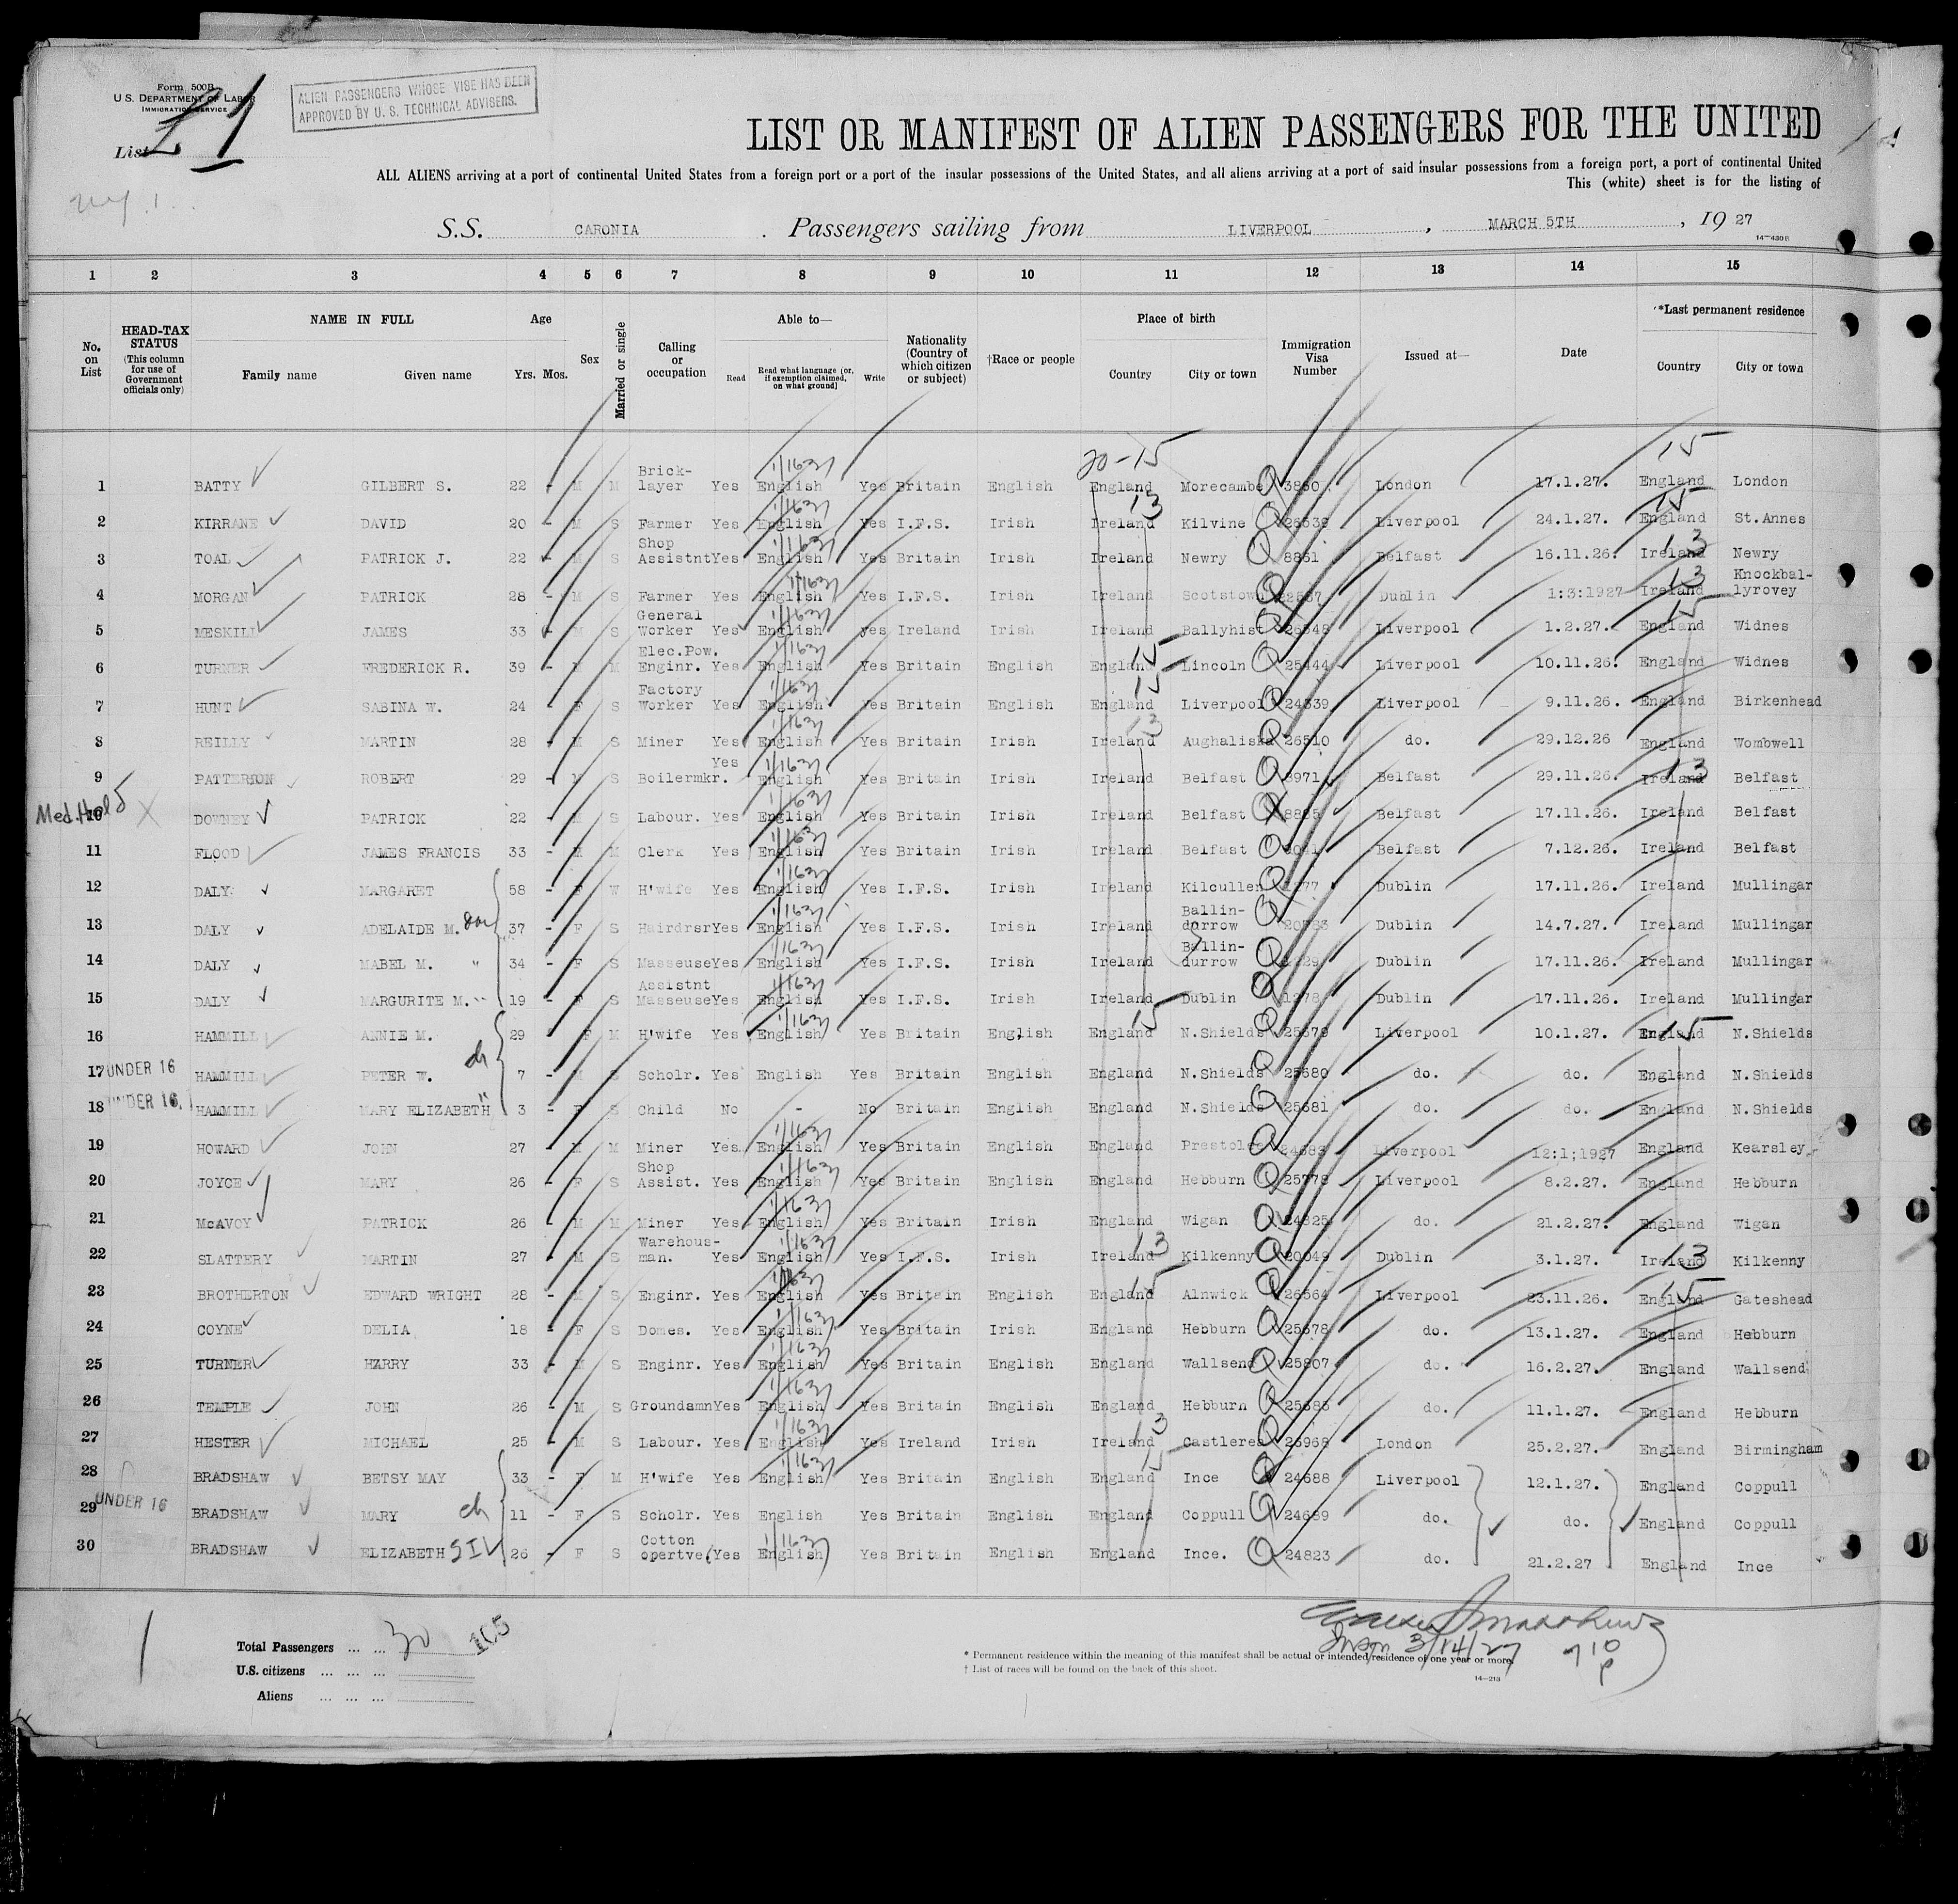 Form 500B
U. S. DEPARTMENT OF LABOR
IMMIGRATION SERVICE
List 1
ALIEN PASSENGERS WHOSE VISE HAS BEEN
APPROVED BY U. S. TECHNICAL ADVISERS.
LIST OR MANIFEST OF ALIEN PASSENGERS FOR THE UNITED
ALL ALIENS arriving at a port of continental United States from a foreign port or a port of the insular possessions of the United States, and all aliens arriving at a port of said insular possessions from a foreign port, a port of continental United
This (white) sheet is for the listing of
S.S. CARONIA . Passengers sailing from LIVERPOOL , MARCH 5TH , 19 27
14—430 B
1 2 3 4 5 6 7 8 9 10 11 12 13 14 15
No. on List
HEAD-TAX STATUS (This column for use of Government officials only)
NAME IN FULL
Family name Given name
Age
Yrs. Mos.
Sex
Married or single
Calling or occupation
Able to—
Read Read what language [or, if exemption claimed, on what ground] Write
Nationality (Country of which citizen or subject)
†Race or people
Place of birth
Country City or town
Immigration Visa Number
Issued at—
Date
*Last permanent residence
Country City or town
20-15 15
1 BATTY GILBERT S. 22 - M M Brick-layer Yes English Yes Britain English England Morecambe London 17.1.27. England London
2 KIRRANE DAVID 20 - M S Farmer Yes English Yes I.F.S. Irish Ireland Kilvine Liverpool 24.1.27. England St.Annes
3 TOAL PATRICK J. 22 - M S Shop Assistnt Yes English Yes Britain Irish Ireland Newry 8851 Belfast 16.11.26. Ireland Newry
4 MORGAN PATRICK 28 - M S Farmer Yes English Yes I.F.S. Irish Ireland Scotstown Dublin 1:3:1927 Ireland Knockbal-lyrovey
5 MESKILL JAMES 33 - M S General Worker Yes English yes Ireland Irish Ireland Ballyhist 26548 Liverpool 1.2.27. England Widnes
6 TURNER FREDERICK R. 39 - M M Elec.Pow. Enginr. Yes English Yes Britain English England Lincoln 25444 Liverpool 10.11.26. England Widnes
7 HUNT SABINA W. 24 - F S Factory Worker Yes English Yes Britain English England Liverpool 24339 Liverpool 9.11.26. England Birkenhead
8 REILLY MARTIN 28 - M S Miner Yes English Yes Britain Irish Ireland Aughaliska 26510 do. 29.12.26 England Wombwell
9 PATTERSON ROBERT 29 - M S Boilermkr. Yes English Yes Britain Irish Ireland Belfast 8971 Belfast 29.11.26. Ireland Belfast
Med. Hold X
10 DOWNEY PATRICK 22 - M S Labour. Yes English Yes Britain Irish Ireland Belfast Belfast 17.11.26. Ireland Belfast
11 FLOOD JAMES FRANCIS 33 - M M Clerk Yes English Yes Britain Irish Ireland Belfast Belfast 7.12.26. Ireland Belfast
12 DALY MARGARET 58 - F W H'wife Yes English Yes I.F.S. Irish Ireland Kilcullen Dublin 17.11.26. Ireland Mullingar
13 DALY ADELAIDE M. dau 37 - F S Hairdrsr Yes English Yes I.F.S. Irish Ireland Ballin-dorrow Dublin 14.7.27. Ireland Mullingar
14 DALY MABEL M. " 34 - F S Masseuse Yes English Yes I.F.S. Irish Ireland Ballin-durrow Dublin 17.11.26. Ireland Mullingar
15 DALY MARGURITE M. " 19 - F S Assistnt Masseuse Yes English Yes I.F.S. Irish Ireland Dublin Dublin 17.11.26. Ireland Mullingar
16 HAMMILL ANNIE M. 29 - F M H'wife Yes English Yes Britain English England N.Shields 25679 Liverpool 10.1.27. England N.Shields
17 UNDER 16 HAMMILL PETER W. ch 7 - M S Scholr. Yes English Yes Britain English England N.Shields 25680 do. do. England N.Shields
18 UNDER 16. HAMMILL MARY ELIZABETH " 3 - F S Child No - No Britain English England N.Shields 25681 do. do. England N.Shields
19 HOWARD JOHN 27 - M M Miner Yes English Yes Britain English England Prestole 24683 Liverpool 12:1;1927 England Kearsley
20 JOYCE MARY 26 - F S Shop Assist. Yes English Yes Britain English England Hebburn 25778 Liverpool 8.2.27. England Hebburn
21 McAVOY PATRICK 26 - M M Miner Yes English Yes Britain Irish England Wigan 24825 do. 21.2.27. England Wigan
22 SLATTERY MARTIN 27 - M S Warehous-man. Yes English Yes I.F.S. Irish Ireland Kilkenny 20049 Dublin 3.1.27. Ireland Kilkenny
23 BROTHERTON EDWARD WRIGHT 28 - M S Enginr. Yes English Yes Britain English England Alnwick 26564 Liverpool 23.11.26. England Gateshead
24 COYNE DELIA 18 - F S Domes. Yes English Yes Britain Irish England Hebburn 25678 do. 13.1.27. England Hebburn
25 TURNER HARRY 33 - M S Enginr. Yes English Yes Britain English England Wallsend 25807 do. 16.2.27. England Wallsend
26 TEMPLE JOHN 26 - M S Groundsmn Yes English Yes Britain English England Hebburn 25683 do. 11.1.27. England Hebburn
27 HESTER MICHAEL 25 - M S Labour. Yes English Yes Ireland Irish Ireland Castlerea London 25.2.27. England Birmingham
28 BRADSHAW BETSY MAY 33 - F M H'wife Yes English Yes Britain English England Ince 24688 Liverpool 12.1.27. England Coppull
29 UNDER 16 BRADSHAW MARY ch 11 - F S Scholr. Yes English Yes Britain English England Coppull 24689 do. do. England Coppull
30 BRADSHAW ELIZABETH SIL 26 - F S Cotton opertve Yes English Yes Britain English England Ince. 24823 do. 21.2.27 England Ince
Total Passengers ... ... 30 105
U.S. citizens ... ... ...
Aliens ... ... ...
* Permanent residence within the meaning of this manifest shall be actual or intended residence of one year or more.
† List of races will be found on the back of this sheet.
14—213
Insp 3/14/27 7 10 P